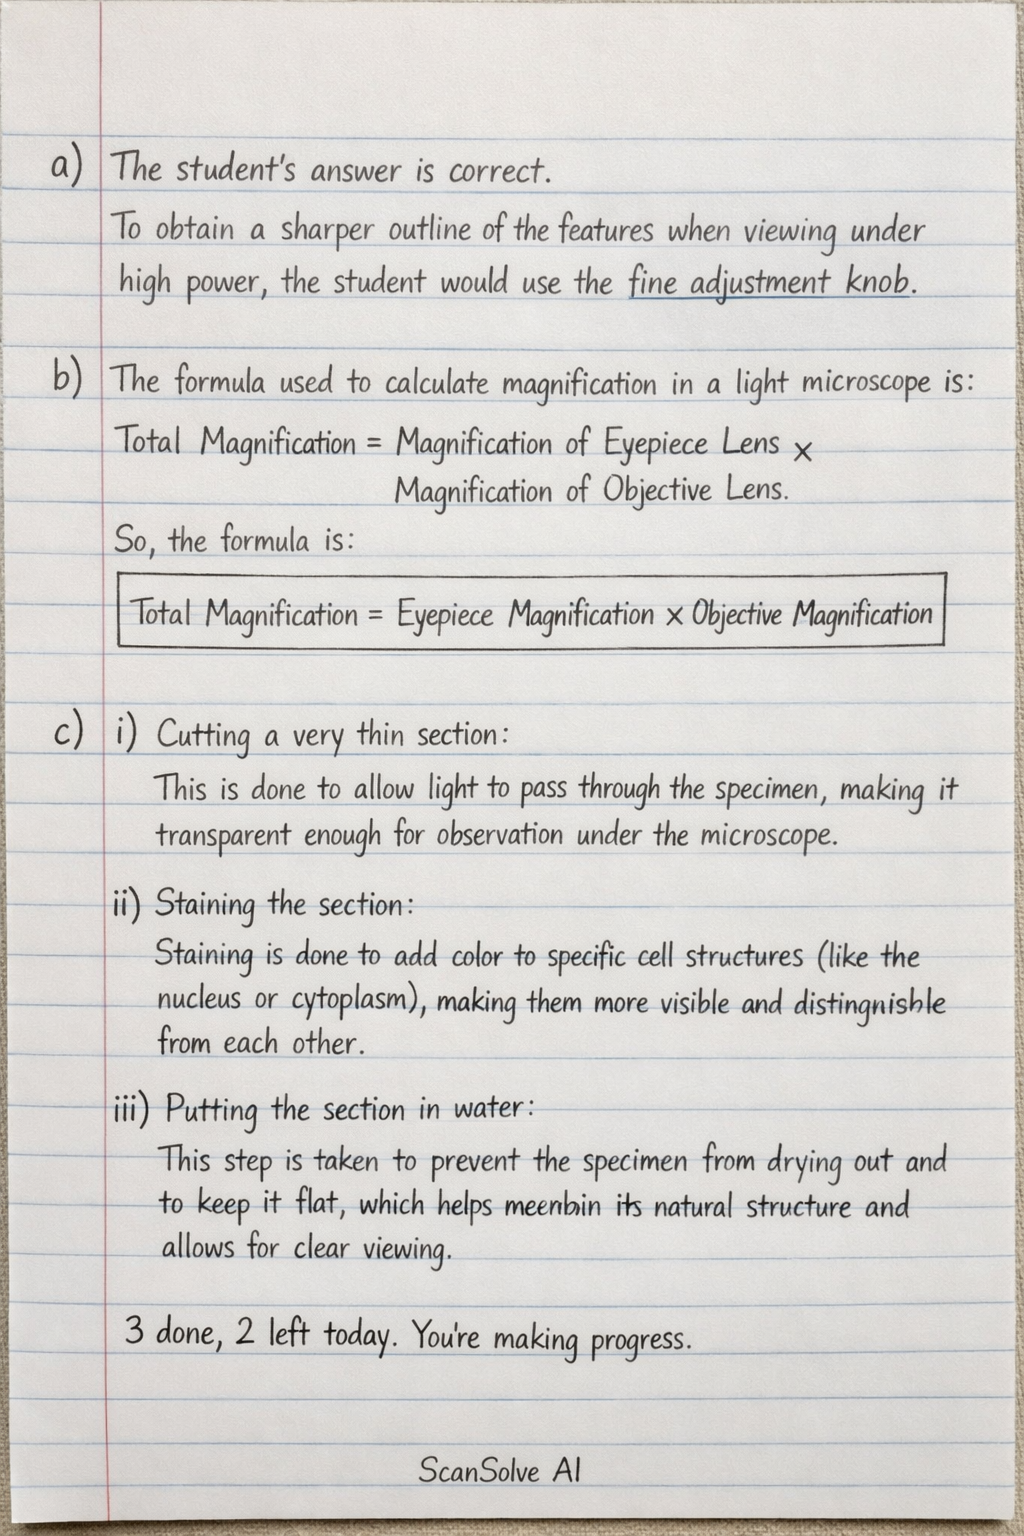 a) The student's answer is correct.
To obtain a sharper outline of the features when viewing under
high power, the student would use the fine adjustment knob.
b) The formula used to calculate magnification in a light microscope is:
Total Magnification = Magnification of Eyepiece Lens ×
Magnification of Objective Lens.
So, the formula is:
Total Magnification = Eyepiece Magnification × Objective Magnification
c) i) Cutting a very thin section:
This is done to allow light to pass through the specimen, making it
transparent enough for observation under the microscope.
ii) Staining the section:
Staining is done to add color to specific cell structures (like the
nucleus or cytoplasm), making them more visible and distingnishble
from each other.
iii) Putting the section in water:
This step is taken to prevent the specimen from drying out and
to keep it flat, which helps its natural structure and
allows for clear viewing.
3 done, 2 left today. You're making progress.
ScanSolve AI